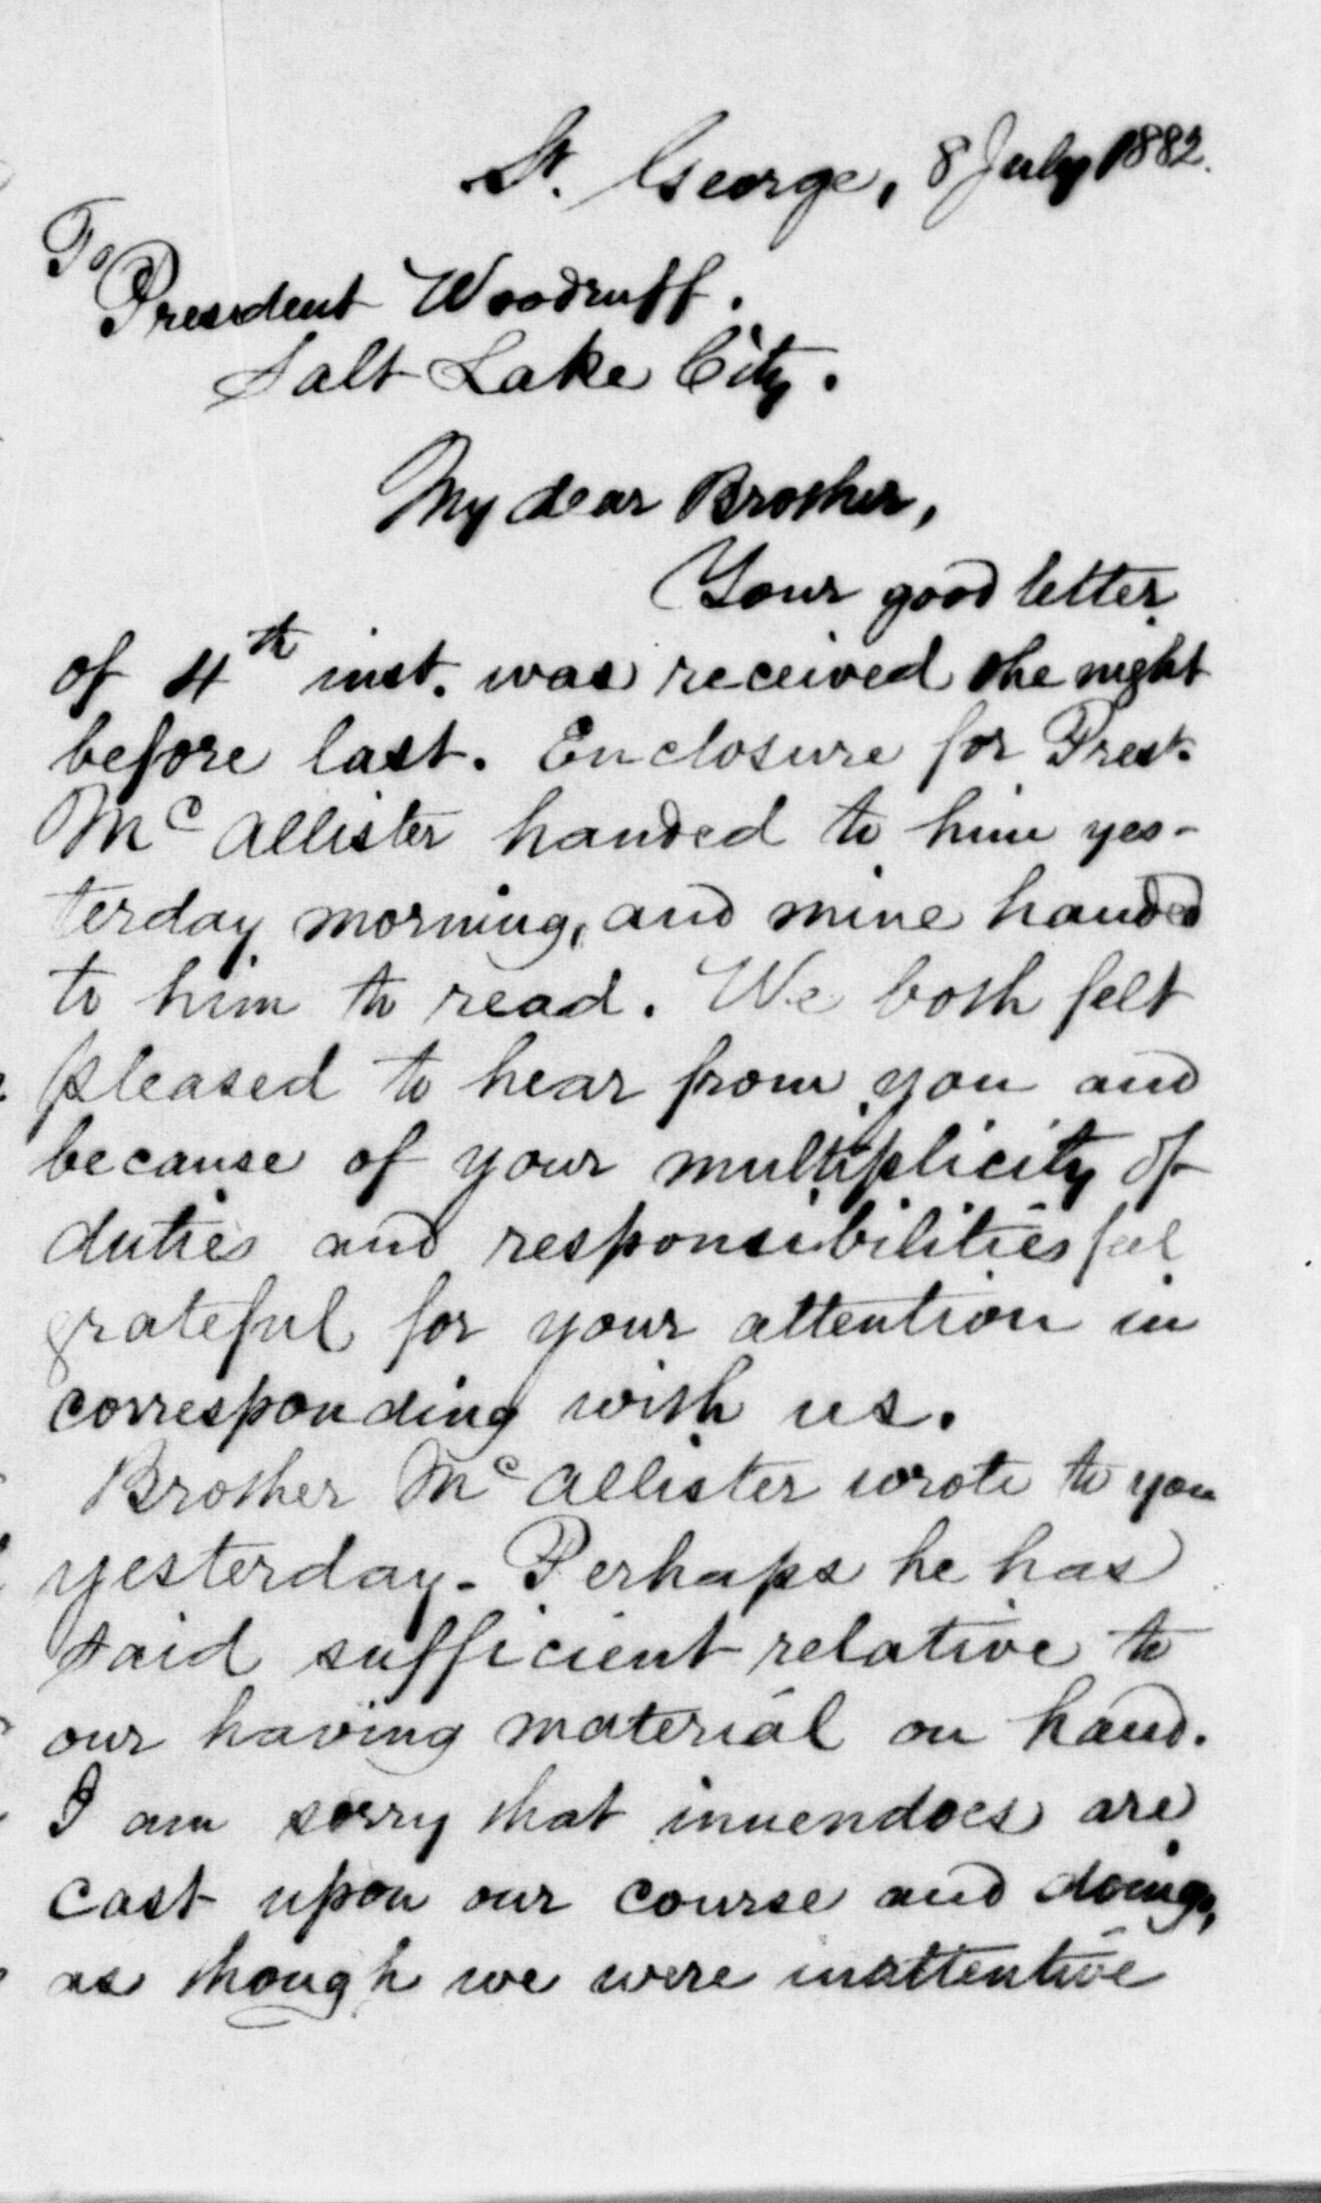 St. George, 8 July 1882.
To
President Woodruff.
Salt Lake City.
My dear Brother,
Your good letter
of 4th inst. was received the night
before last. Enclosure for Prest.
McAllister handed to him yes-
terday morning, and mine handed
to him to read. We both felt
pleased to hear from you and
because of your multiplicity of
duties and responsibilities feel
grateful for your attention in
corresponding with us.
Brother McAllister wrote to you
yesterday. Perhaps he has
said sufficient relative to
our having material on hand.
I am sorry that inuendoes are
cast upon our course and doings,
as though we were inattentive